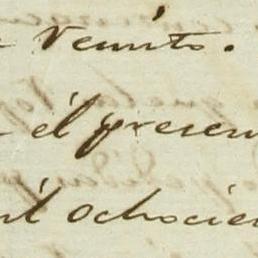 venito.
él presen
il ochocie